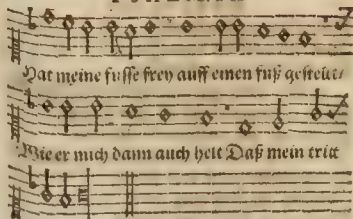 Hat meine füsse frey auff einen fuß gestelt/
Wie er mich dann auch helt Daß mein tritt